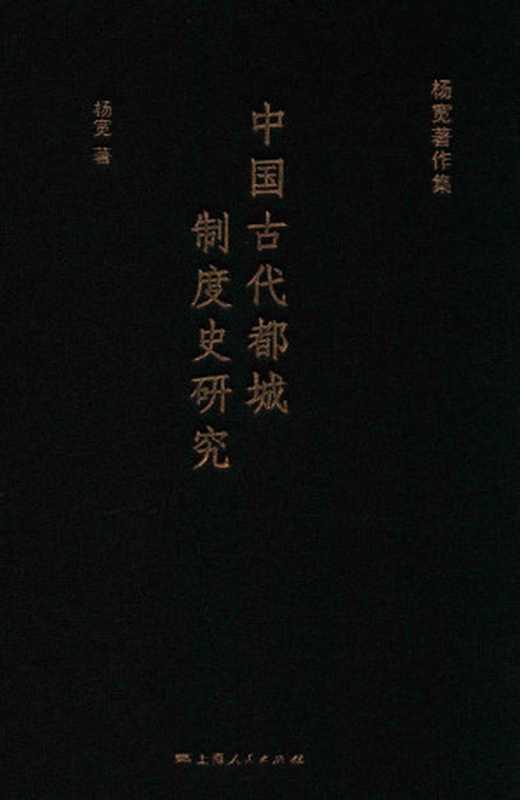 杨宽著作集
中国古代都城
制度史研究
杨宽 著
上海人民出版社